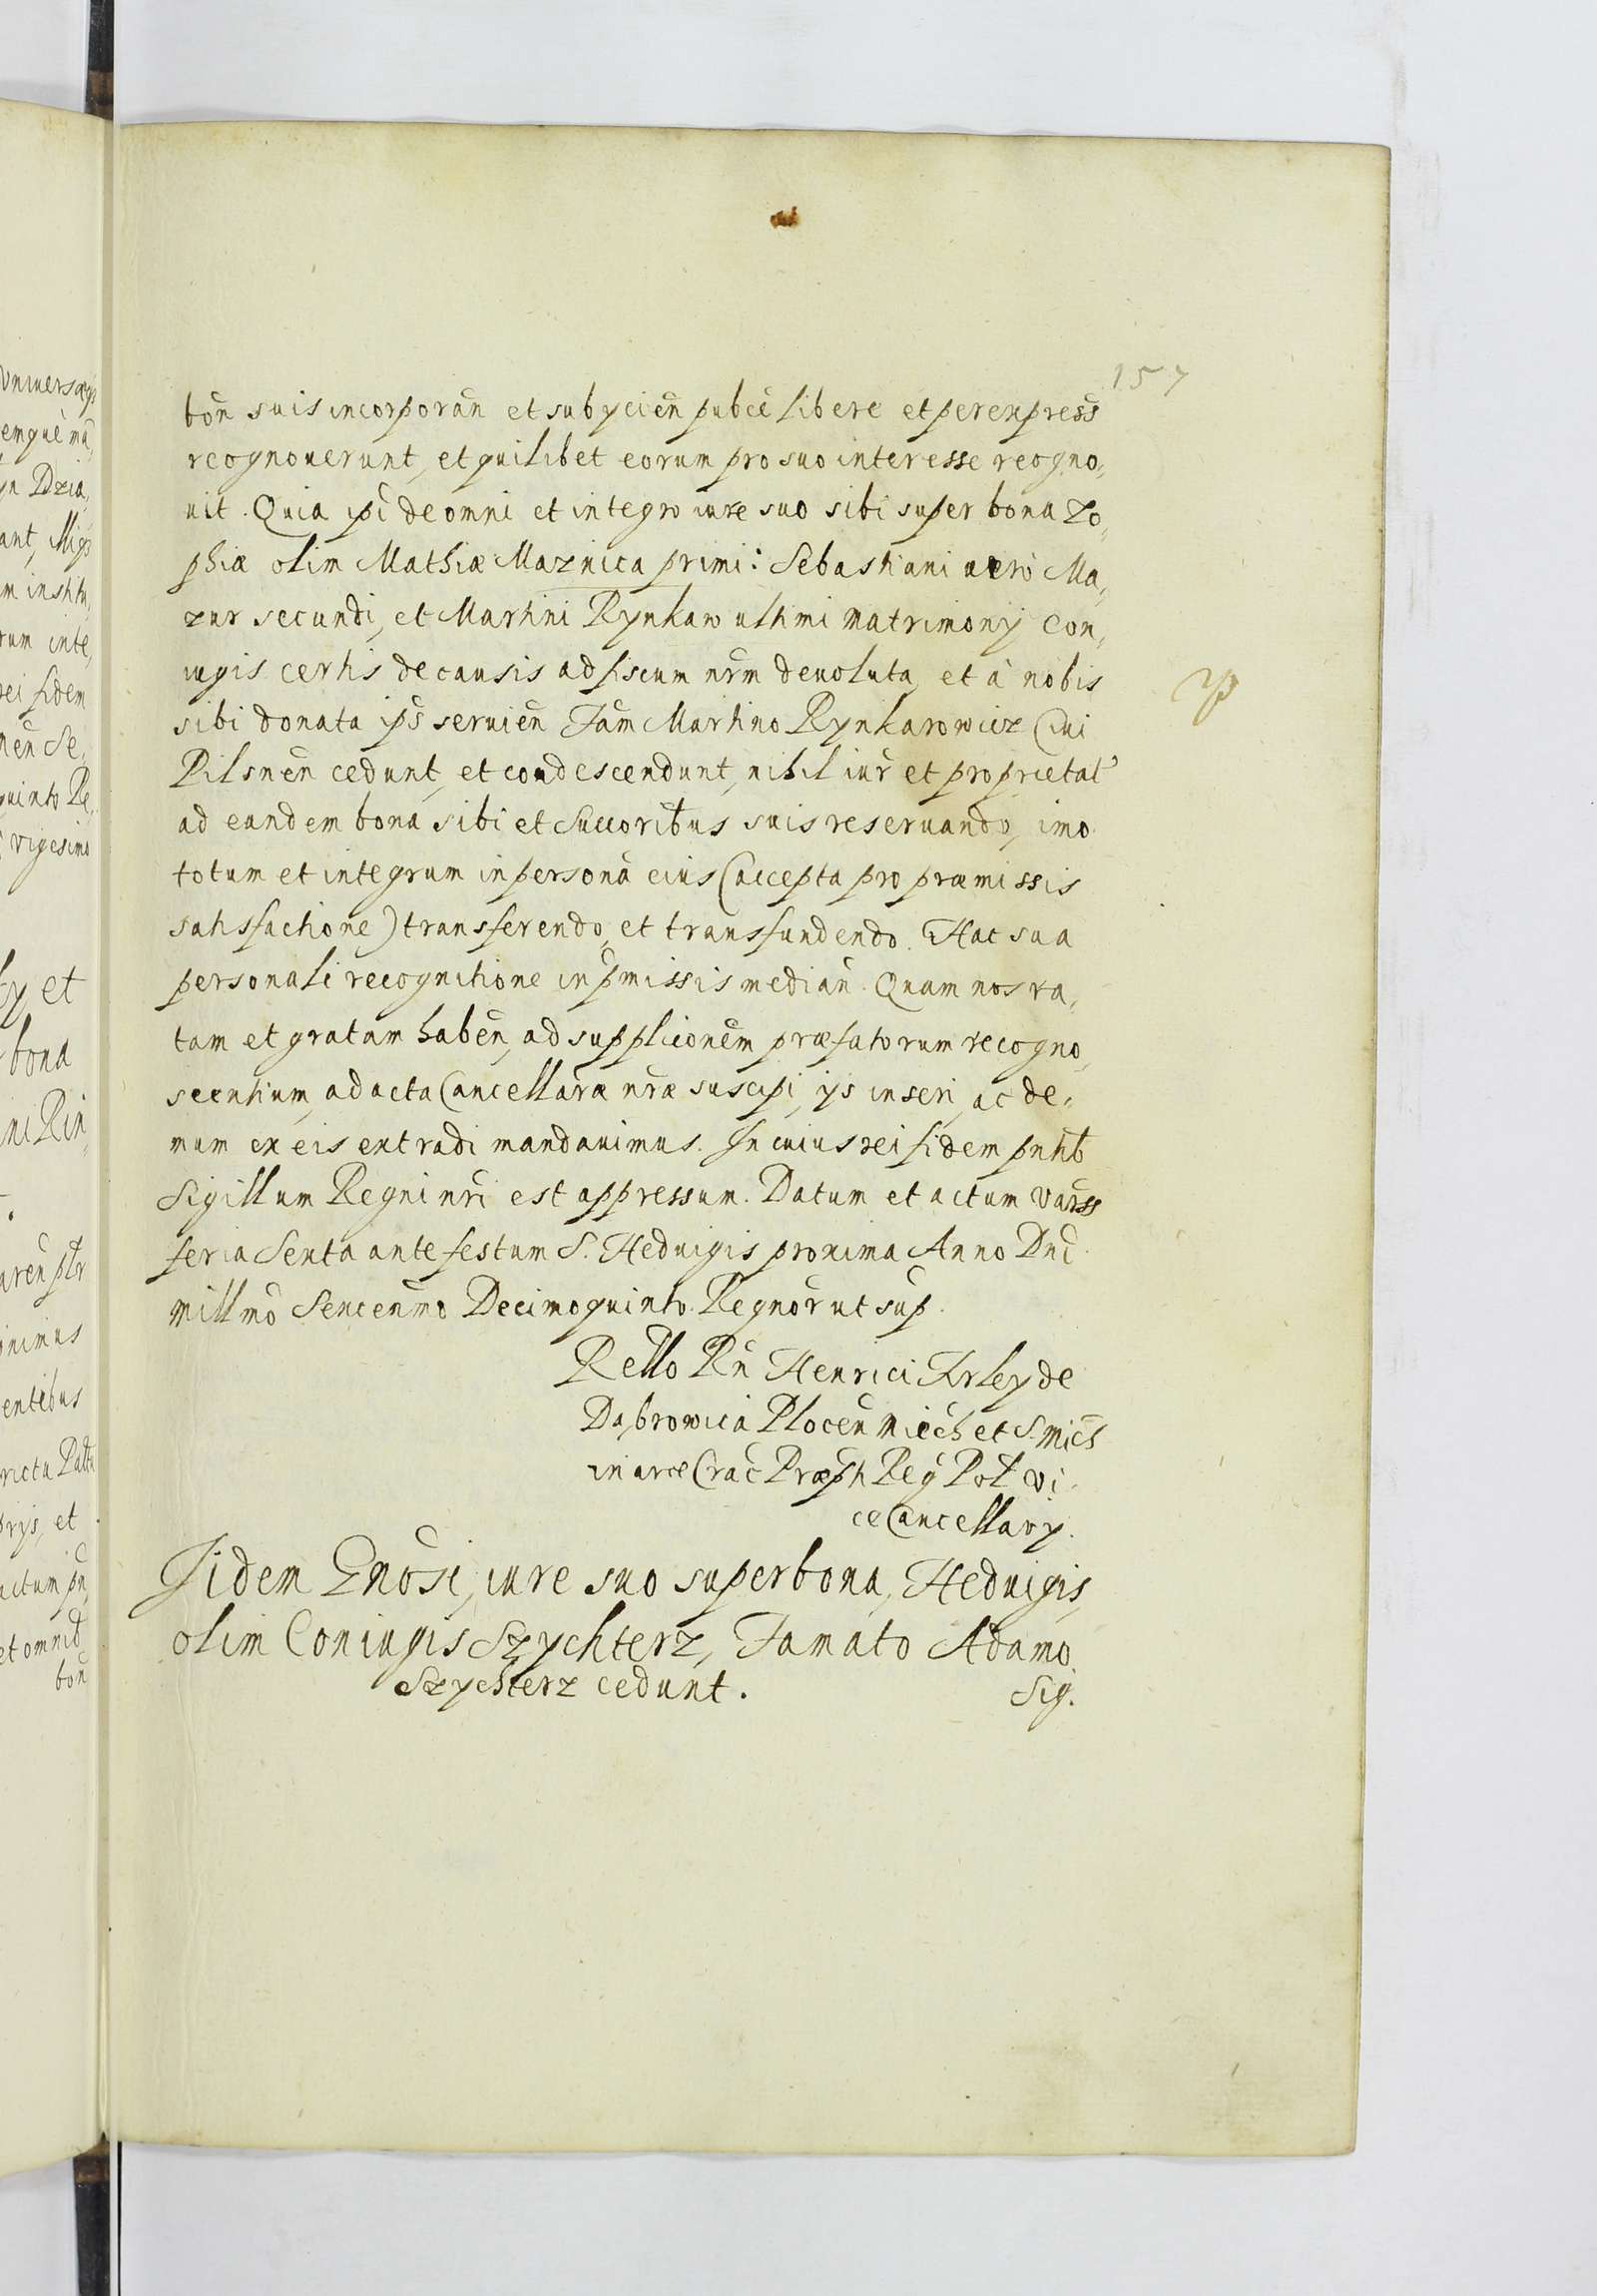 157
bon̄ suis incorporan̄ et subycien̄ pubcē libere et per expresš
recognouerunt, et quilibet eorum pro suo interesse recogno,
uit. Quia ipī de omni et integro iure suo sibi super bona Zo,
phiæ olim Mathiæ Maznica primi: Sebastiani uero Ma,
zur secundi, et Martini Rynkaw ultimi matrimony Con,
iugis certis de causis ad fiscum nrm̄ deuoluta, et à nobis
sibi donata ips̄ seruien̄ Fam̄ Martino Rynkarowicz Ciui
Pilsnen̄ cedunt, et condescendunt, nihil iur̄ et proprietat'
ad eandem bona sibi et Succoribus suis reseruando, imo
totum et integrum in personā eius (accepta pro præmissis
satisfactione) transferendo, et transfundendo. Hac sua
personali recognitione in p̄missis median̄. Quam nos ra,
tam et gratam haben̄, ad supplicionem̄ præfatorum recogno,
scentium, ad acta Cancellaræ nræ suscipi, ys inseri, ac de,
mum ex eis extradi mandauimus. In cuius rei fidem pntib
Sigillum Regni nri est appressum. Datum et actum Varss
feria Sexta ante festum S. Heduigis proxima Anno Dnī
millmō Sexcenmō Decimoquinto. Regnor̄ ut sup̄.
Rello Rn̄ Henrici Firley de
Dąbrowica Plocen̄ Miech̄ et S. Mich̄
in arce Crac̄ Præpti Reg Pol Vi,
ce Cancellary.
Iidem Gnosi, iure suo super bona, Heduigis,
olim Coniugis Szychterz, Famato Adamo
Szychterz cedunt.
Sig.